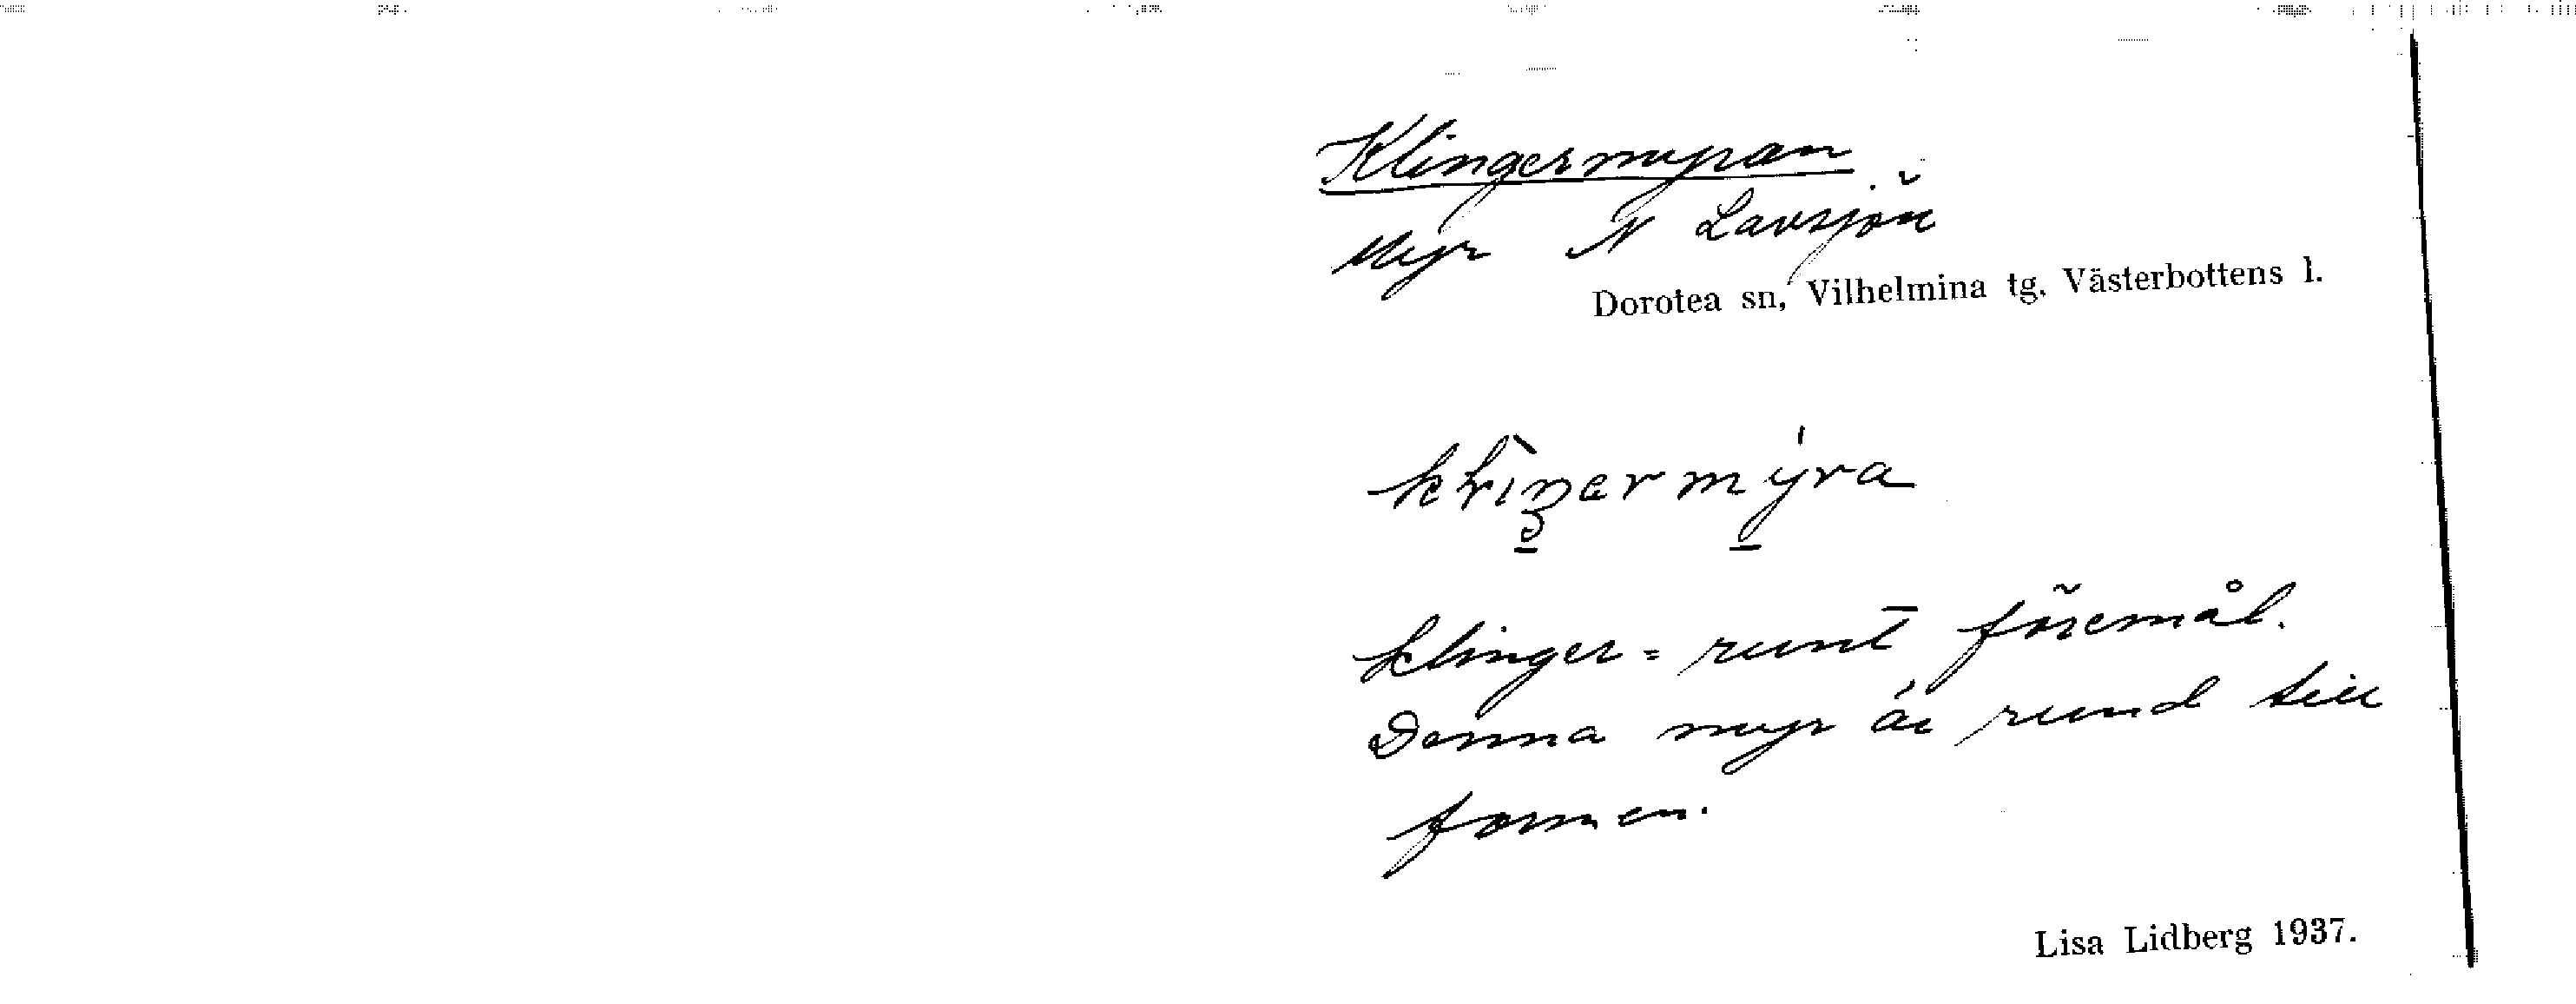 Klingermyran
Myr N Lavsjön
Dorotea sn, Vilhelmina tg, Västerbottens l.
klinger = runt föremål.
Denna myr är rund till
formen.
Lisa Lidberg 1937.